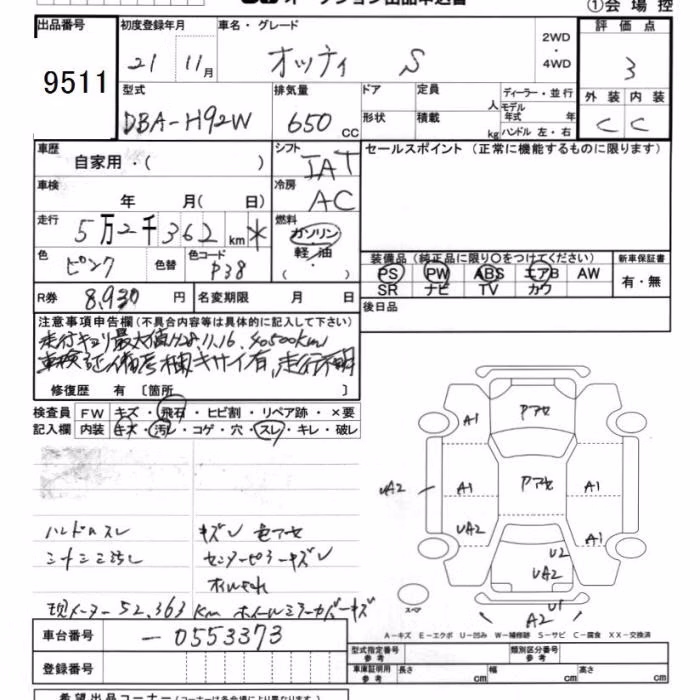 オークション出品申込書
①会場控
出品番号 初度登録年月 車名・グレード 2WD・4WD 評価点
9511 21 11月 オッティ S 3
型式 排気量 ドア 定員 人 ディーラー・並行 外装 内装
DBA-H92W 650cc 形状 積載 kg モデル年式 年 C C
ハンドル 左・右
車歴 自家用・( ) シフト IAT セールスポイント(正常に機能するものに限ります)
車検 年 月( 日) 冷房 AC
走行 5万2千362km * 燃料 ガソリン・軽油・( )
色 ピンク 色替 色コード P38
装備品(純正品に限り○をつけてください) 新車保証書
PS PW ABS エアB AW 有・無
SR ナビ TV カワ
R券 8,930円 名変期限 月 日 後日品
注意事項申告欄(不具合内容等は具体的に記入して下さい)
走行キロ最大値H28.11.16. 40500km
車検証備考欄キサイ有,走行不明
修復歴 有〔箇所 〕
検査員 FW キズ・飛石・ヒビ割・リペア跡・×要
記入欄 内装 キズ・汚レ・コゲ・穴・スレ・キレ・破レ
Pアセ
A1
Pアセ
UA2 A1 A1
UA2 A1
U2
UA2
U1
A2
スペア
ハンドルスレ キズレ 色アセ
シートシミ汚レ センターピラーキズレ
現メーター52,363km ホイールミラーカバーキズ
A-キズ E-エクボ U-凹み W-補修跡 S-サビ C-腐食 XX-交換済
車台番号 -0553373
型式指定番号 参考 類別区分番号 参考
登録番号 車庫証明用 参考 長さ cm 幅 cm 高さ cm
希望出品コーナー(コーナーは各会場により異なります)